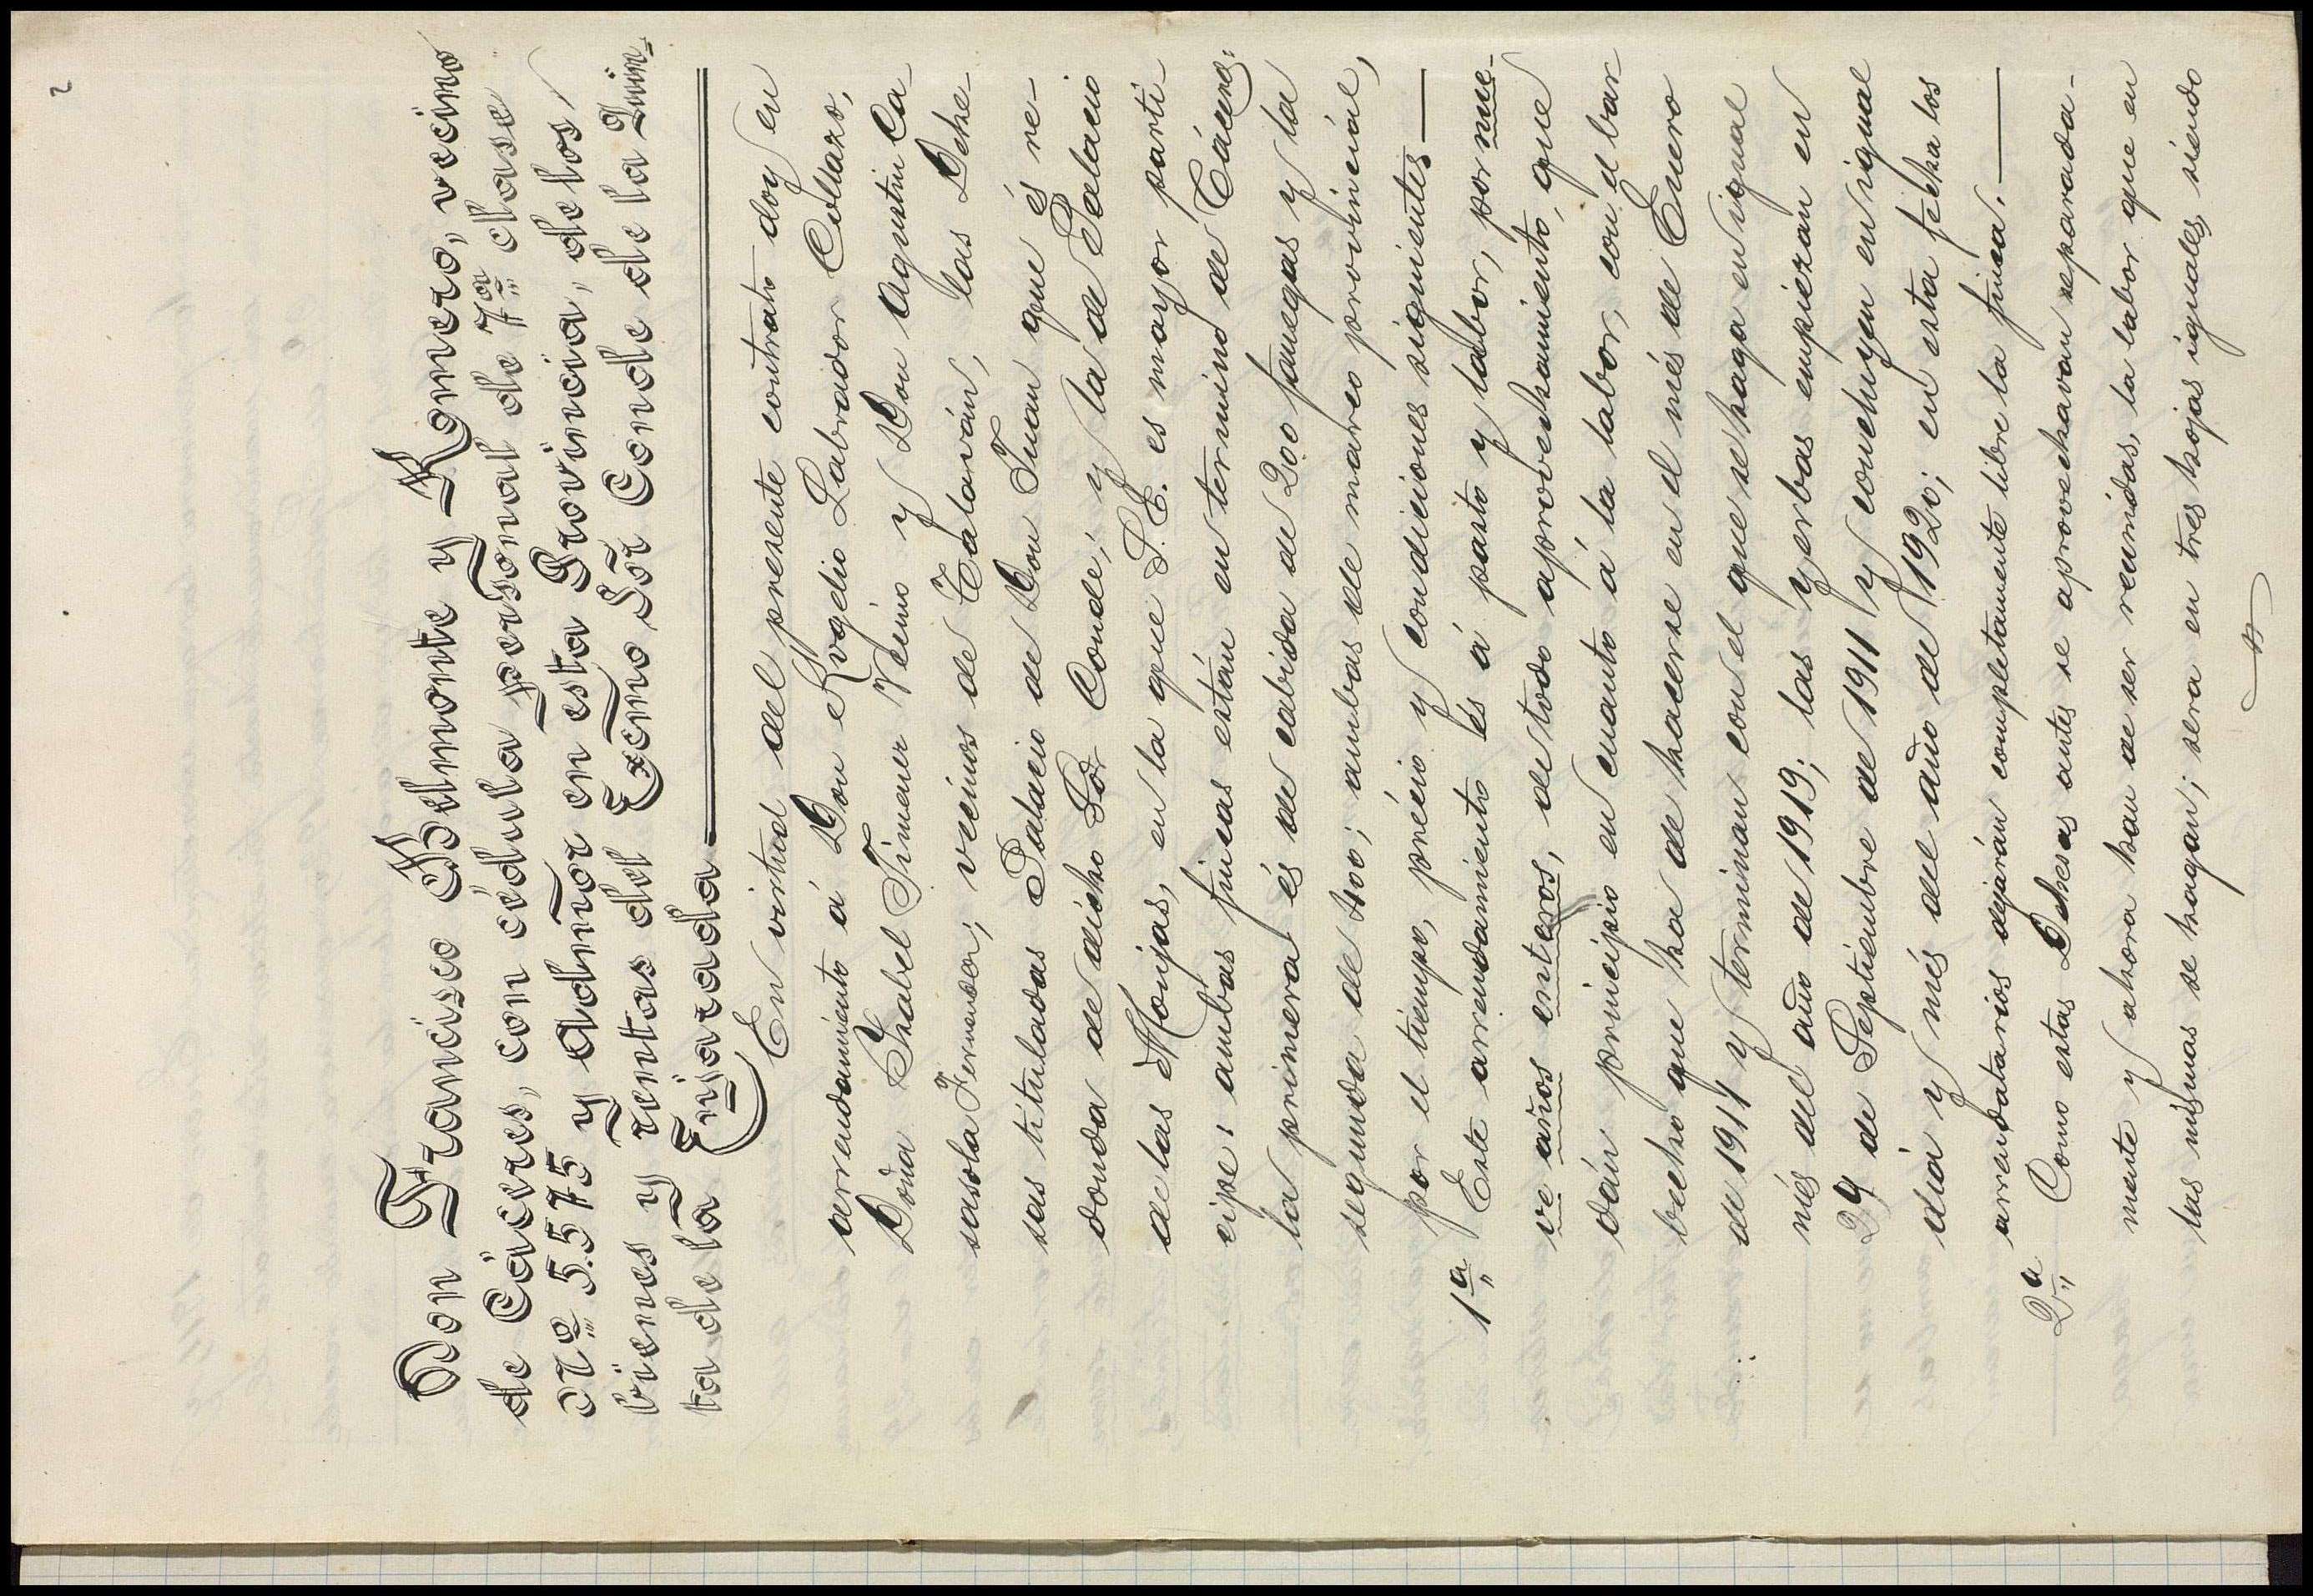 2
Don Francisco Belmonte y Romero, vecino
de Cáceres, con cédula personal de 7ª clase
nº 5.575 y admor en esta Provincia, de los
bienes y rentas del Excmo Sor Conde de la Quin-
ta de la Enjarada
En virtud del presente contrato doy en
arrendamiento á Don Evogélio Labrador Collazo,
Doña Ysabel Jimener Vecino y Don Agustin Ca-
sasola Fernandez; vecinos de Talaván, las Dehe-
sas tituladas Palacio de Don Juan que és re-
donda de dicho Sor Conde; y la de Palacio
de las Monjas, en la que S.E. es mayor parti-
cipe; ambas fincas están en termino de Cáceres,
la primera és de cabida de 200 fanegas y la
segunda de 400; ambas de marco provincial,
por el tiempo, précio y condiciones siguientes
1ª Este arrendamiento és á pasto y labor, por nue-
ve años enteros, de todo aprovechamiento, que
dán principio en cuanto á la labor, con el bar
becho que ha de hacerse en el més de Enero
de 1911 y terminan con el que se haga en igual
més del año de 1919; las yerbas empiezan en
29 de Septiembre de 1911 y concluyen en igual
dia y més del año de 1920; en esta fecha los
arrendatarios dejarán completamente libre la finca.
2ª Como estas Dehesas antes se aprovechavan separada-
mente y ahora han de ser reunidas, la labor que en
las mismas se hagan; sera en tres hojas iguales, siendo